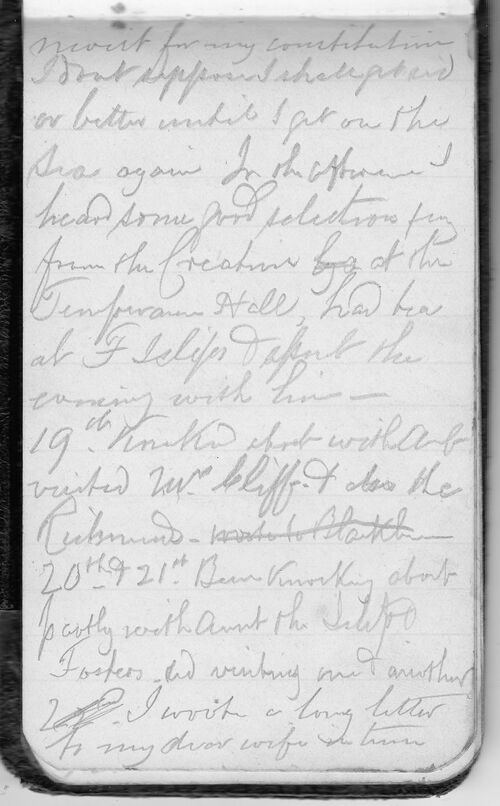 moist for my constitution
I dont suppose I shall get rid
or better until I get on the
Sea again In the afternoon I
heard some good selections
from the Creation at the
Temperance Hall, had tea
at F Islips & spent the
evening with him —
19th. Knocked about with Aunt
visited Mrs. Cliffe & also the
Richmonds - wrote to Blackburn
20th & 21st. Been Knocking about
partly with Aunt the Islips &
Fosters and visiting one & another
I wrote a long letter
to my dear wife in time